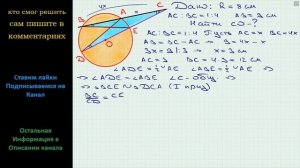 кто смог решить
сам пишите в
комментариях
Ставим лайки
Подписываемся на
Канал
Остальная
Информация в
Описании канала
4x
C
A
E
B
D
Дано: R = 8 см
AC : BC = 1 : 4 AB = 9 см
Найти CD - ?
AC : BC = 1 : 4 Пусть AC = x BC = 4x
AB = BC - AC ⇒ 9 = 4x - x
3x = 9 | : 3 ⇒ x = 3
AC = 3 BC = 4 · 3 = 12 см
∠ADE = ½ ∪AE ∠ABE = ½ ∪AE ⇒
⇒ ∠ADE = ∠ABE ∠C - общ. ⇒
⇒ △BCE ∾ △DCA (I приз)
BC/CD = CE